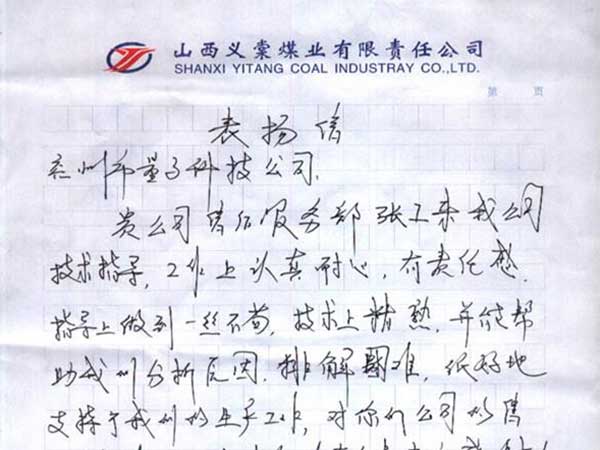 山西义棠煤业有限責任公司
SHANXI YITANG COAL INDUSTRAY CO.,LTD.
第 页
表扬信
兖州市量子科技公司.
贵公司售后服务部张工来我公司
技术指导,工作上认真耐心,有责任感.
指导上做到一丝不苟,技术上精熟,并能帮
助我们分析原因.排解困难,很好地
支持了我们的生产工作,对你们公司的售